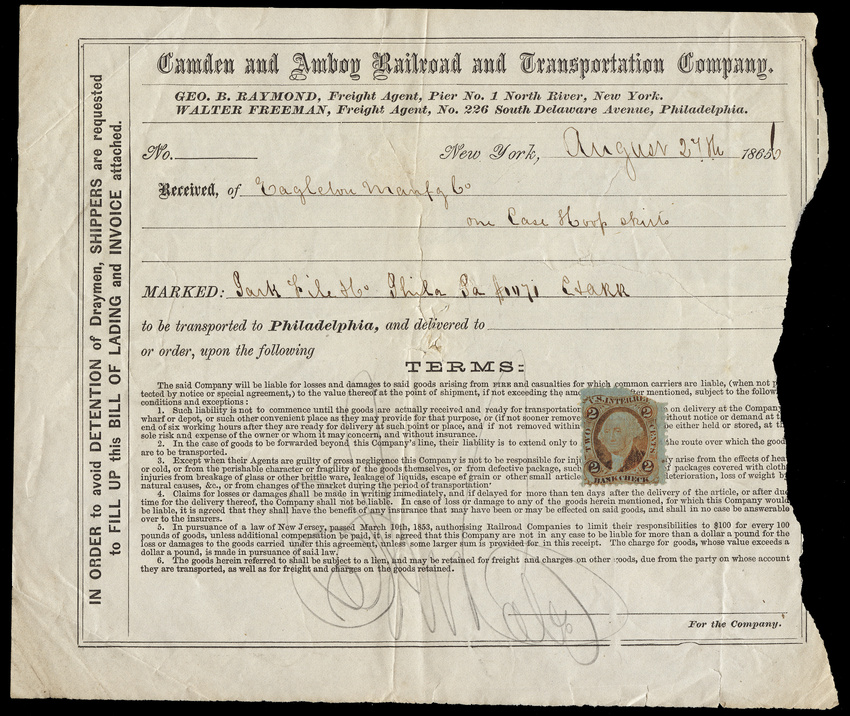 Camden and Amboy Railroad and Transportation Company.
GEO. B. RAYMOND, Freight Agent, Pier No. 1 North River, New York.
WALTER FREEMAN, Freight Agent, No. 226 South Delaware Avenue, Philadelphia.
No. New York, August 27th 186
Received, of Eagleton Manfg Co
one Case Hoop skirts
MARKED: Park Phila Pa
to be transported to Philadelphia, and delivered to
or order, upon the following
TERMS:
The said Company will be liable for losses and damages to said goods arising from FIRE and casualties for which common carriers are liable, (when not
tected by notice or special agreement,) to the value thereof at the point of shipment, if not exceeding the after mentioned, subject to the
conditions and exceptions:
1. Such liability is not to commence until the goods are actually received and ready for on delivery at the Company
wharf or depot, or such other convenient place as they may provide for that purpose, or (if not sooner without notice or demand at
end of six working hours after they are ready for delivery at such point or place, and if not removed within be either held or stored, at
sole risk and expense of the owner or whom it may concern, and without insurance.
2. In case of goods to be forwarded beyond this Company's line, their liability is to extend only to the route over which the
are to be transported.
3. Except when their Agents are guilty of gross negligence this Company is not to be responsible for arise from the effects of
or cold, or from the perishable character or fragility of the goods themselves, or from defective package, packages covered with
injuries from breakage of glass or other brittle ware, leakage of liquids, escape of grain or other small loss of weight
natural causes, &c., or from changes of the market during the period of transportation
4. Claims for losses or damages shall be made in writing immediately, and if delayed for more than ten days after the delivery of the article, or after
time for the delivery thereof, the Company shall not be liable. In case of loss or damage to any of the goods herein mentioned, for which this Company
be liable, it is agreed that they shall have the benefit of any insurance that may have been or may be effected on said goods, and shall in no case be answerable
over to the insurers.
5. In pursuance of a law of New Jersey, passed March 10th, 1853, authorising Railroad Companies to limit their responsibilities to $100 for every 100
pounds of goods, unless additional compensation be paid, it is agreed that this Company are not in any case to be liable for more than a dollar a pound for the
loss or damages to the goods carried under this agreement, unless some larger sum is provided for in this receipt. The charge for goods, whose value exceeds a
dollar a pound, is made in pursuance of said law.
6. The goods herein referred to shall be subject to a lien, and may be retained for freight and charges on other goods, due from the party on whose account
they are transported, as well as for freight and charges on the goods retained.
For the Company.
IN ORDER to avoid DETENTION of Draymen, SHIPPERS are requested
to FILL UP this BILL OF LADING and INVOICE attached.
U.S. INTER. REV.
2 2
TWO CENTS
2 2
BANK CHECK